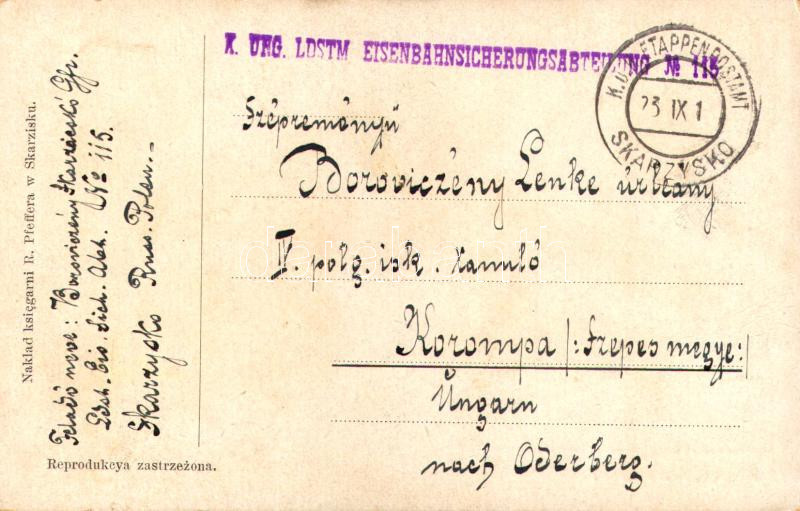 K. UNG. LDSTM EISENBAHNSICHERUNGSABTEILUNG № 115
K.U.K. ETAPPENPOSTAMT
23 IX 1
SKARZYSKO
Szépreményű
Boroviczény Lenke úrleány
IV. polg. isk. tanuló
Korompa /: Szepes megye:/
Ungarn
nach Oderberg.
Feladó neve: Boroviczény
Ldst. Eis. Sich. Abt. № 115.
Skarzysko Russ. Polen.-
Nakład księgarni R. Pfeffera w Skarzisku.
Reprodukcya zastrzeżona.